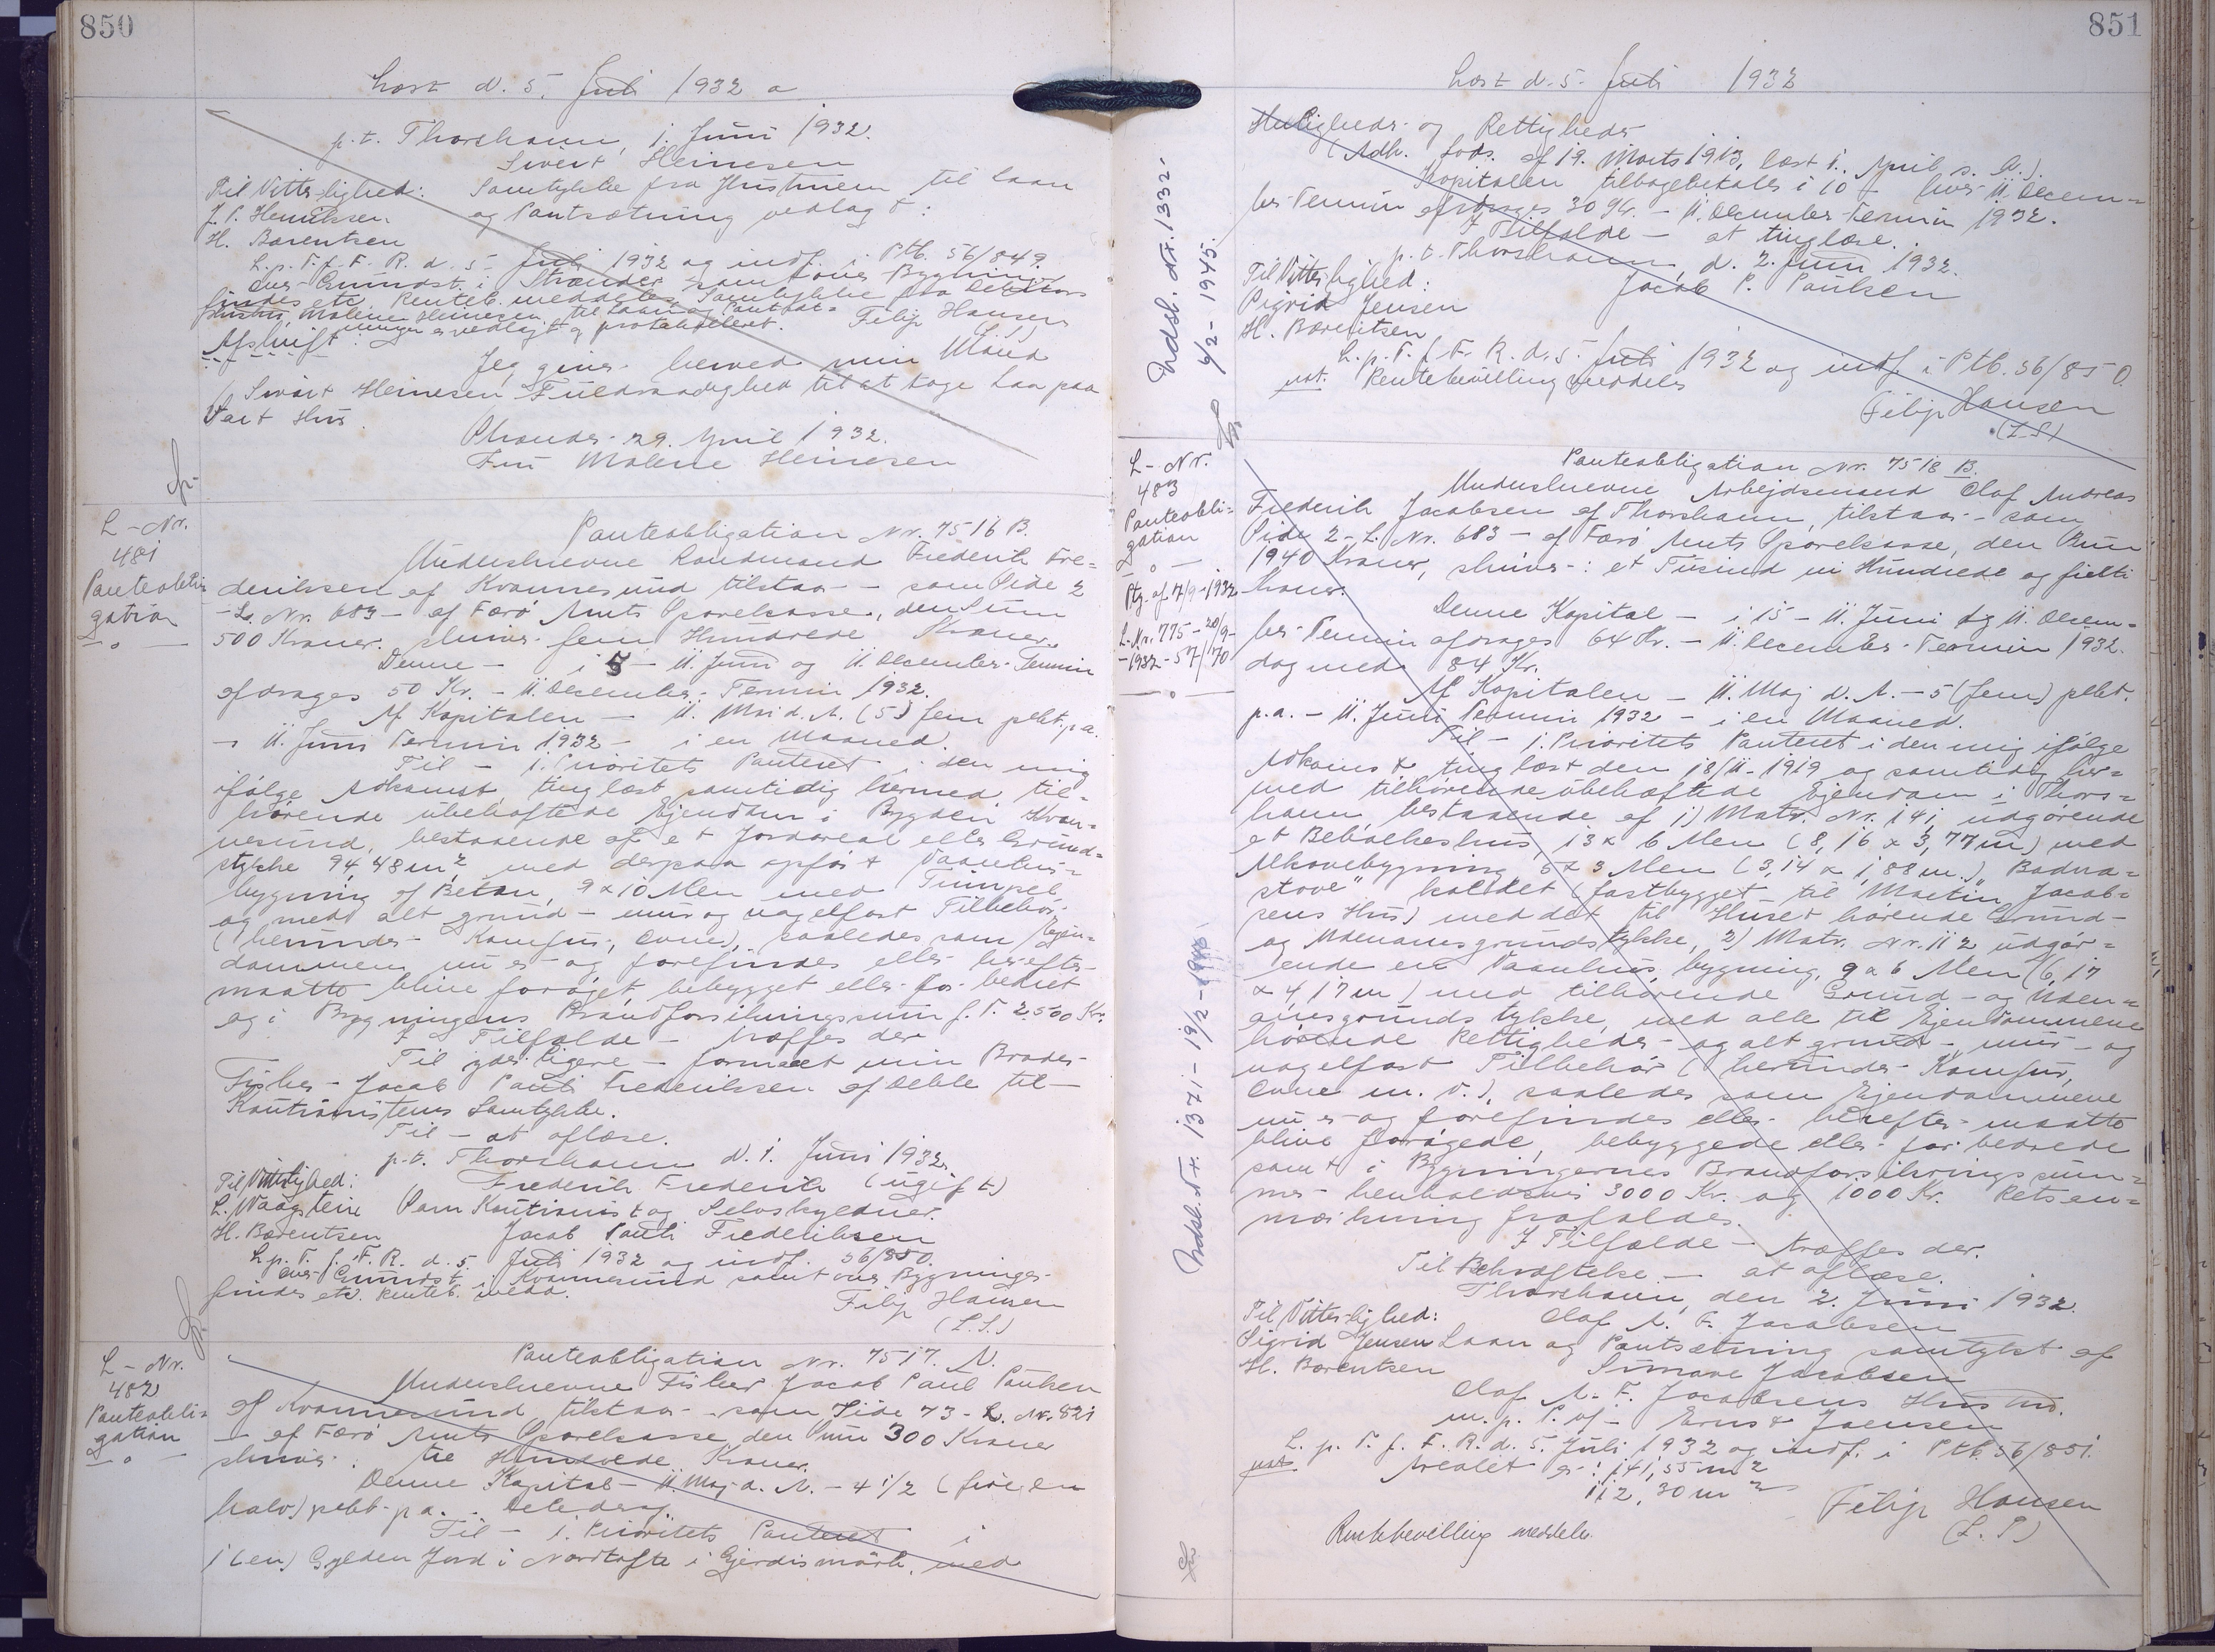 850
Læst d. 5. Juli 1932
p.t. Thorshavn, 1. Juni 1932.
Sivert Heinesen
Til Vitterlighed: Samtykke fra Hustruen til Laan
J. P. Henriksen. og Pantsætning vedlagt:
H. Barentsen
L. p. T. f. F. R. d. 5. Juli 1932 og indf. i Ptb. 56/849.
over Grundst. i Strænder samt over Bygninger
findes etc. Renteb. meddeles Samtykke fra Debitors
Hustru, Malene Heinesen til Laan og Pantsæt=
ningen er vedlagt og protokolleret. Filip Hansen
Afskrift: (L. S.)
Jeg giver herved min Mand
Sivert Heinesen Fuldmægtighed til at tage Laa paa
Vort Hus.
Strander 29. April 1932.
Fru Malene Heinesen
L-Nr.
481
Panteobli=
gation
Panteobligation Nr. 7516 B.
Underskrevne Landmand Frederik Fre=
deriksen af Kvannesund tilstaar - som Side 2
- L. Nr. 683 - af Færø Amts Sparekasse, den Sum
500 Kroner. skriver fem Hundrede Kroner.
Denne - i 5 - 11. Juni og 11. December Termin
afdrages 50 Kr. - 11. December Termin 1932.
Af Kapitalen - 11. Maj d. A. (5) fem pCt. p.a.
- 11. Juni Termin 1932 - i en Maaned.
Til - 1. Prioritets Panteret i den mig
ifølge Adkomst, tinglæst samtidig hermed til=
hørende ubehæftede Ejendom i Bygden Kvan=
nesund, bestaaende af et Jordareal eller Grund=
stykke 94,48 m², med derpaa opført Vaanhus=
bygning af Beton, 9 x 10 Alen med Tumpel
og med alt grund- mur og nagelfast Tilbehør
(herunder Komfur, Ovne), saaledes som Ejen=
dommen nu er og forefindes eller herefter
maatte blive forøget, bebygget eller for bedret
og i Bygningens Brandforsikringssum f. T. 2500 Kr.
I Tilfælde - træffes der
Til yder ligere - formaaet min Broder
Fisker - Jacob Pauli Frederiksen af Deble til -
Kautionistens Samtykke.
Til - at aflæse.
p.t. Thorshavn d. 1. Juni 1932.
Til Vitterlighed: Frederik Frederik (ugift)
L. Waagstein Som Kautionist og Selvskyldner.
H. Barentsen Jacob Pauli Frederiksen
L. p. T. f. F. R. d. 5. Juli 1932 og indf. 56/850.
over Grundst. i Kvannesund samt over Bygninger
findes etc. Renteb. medd.
Filip Hansen
(L. S.)
L-Nr.
482
Panteobli=
gation
Panteobligation Nr. 7517. A.
Underskrevne Fisker Jacob Paul Paulsen
af Kvannesund tilstaar - som Side 73 - L. Nr. 821
- af Færø Amts Sparekasse den Sum 300 Kroner
skriver: tre Hundrede Kroner.
Denne Kapital - 11. Maj d. A. - 4 1/2 (fire en
halv) pCt. p.a.
Til - 1. Prioritets Panteret i
1 (en) Gylden Jord i Nordtofte i Gjerdismark, med
851
Læst d. 5. Juli 1932
Herligheder og Rettigheder
(Adk. Lods. af 19. Marts 1913, læst 1. April s. A.).
Kapitalen tilbagebetales i 10 - hver 11. Decem=
ber Termin afdrages 30 Kr. - 11. December Termin 1932.
I Tilfælde - at tinglæse.
p.t. Thorshavn, d. 2. Juni 1932.
Til Vitterlighed: Jacob P. Paulsen
Sigrid Jensen
H. Barentsen
L. p. T. f. F. R. d. 5. Juli 1932 og indf. i Ptb. 56/850.
not. Rentebevilling meddeles
Filip Hansen
(L. S)
Udsl. Nr. 1332-
6/2 - 1945.
L-Nr.
483
Panteobli=
gation
Ptg. af 7/9-1932
L-Nr. 775 - 20/9-
-1932 - 57/70
Panteobligation Nr. 7518 B.
Underskrevne Arbejdsmand Olaf Andreas
Frederik Jacobsen af Thorshavn, tilstaar - som
Side 2 - L. Nr. 683 - af Færø Amts Sparekasse, den Sum
1940 Kroner, skriver: et Tusind ni Hundrede og firti
Kroner.
Denne Kapital - i 15 - 11. Juni og 11. Decem=
ber Termin afdrages 64 Kr. - 11. December Termin 1932.
dog med 84 Kr.
Af Kapitalen - 11. Maj d. A. - 5 (fem) pCt.
p.a. - 11. Juni Termin 1932 - i en Maaned.
Til - 1. Prioritets Panteret i den mig ifølge
Adkomst tinglæst den 18/11-1919 og samtidig her=
med tilhørende ubehæftede Ejendom i Thors=
havn bestaaende af 1) Matr. Nr. 141, udgørende
et Beboelseshus, 13 x 6 Alen (8,16 x 3,77 m) med
Alkovebygning 5 x 3 Alen (3,14 x 1,88 m.), Badna=
stove" kaldet (fastbygget til Martin Jacob=
sens Hus) med det til Huset hørende Grund-
og Udenomsgrundstykke, 2) Matr. Nr. 112 udgør=
ende en Vaanhus bygning, 9 x 6 Alen (6,17
x 4,17 m) med tilhørende Grund- og Uden=
omsgrunds tykke, med alle til Ejendommene
hørende Rettigheder og alt grund- mur- og
nagelfast Tilbehør (herunder Komfur,
Ovne m. v.), saaledes som Ejendommene
nu er og forefindes eller herefter maatte
blive forøgede, bebyggede eller for bedrede
samt i Bygningernes Brandforsikringssum=
mer henholdsvis 3000 Kr. og 1000 Kr. Retsan=
mærkning frafaldes.
I Tilfælde - træffes der.
Til Bekræftelse - at aflæse.
Thorshavn, den 2. Juni 1932.
Til Vitterlighed: Olaf A. F. Jacobsen
Sigrid Jensen Laan og Pantsætning samtykt af
H. Barentsen Simone Jacobsen
Olaf A. F. Jacobsens Hustru.
m. p. P. af - Ernst Joensen
L. p. T. f. F. R. d. 5. Juli 1932 og indf. i Ptb. 56/851.
not. Arealet er: 141,55 m²
112,30 m²
Filip Hansen
(L. S)
Rentebevilling meddeles.
Udsl. Nr. 1371 - 19/2 - 1946.